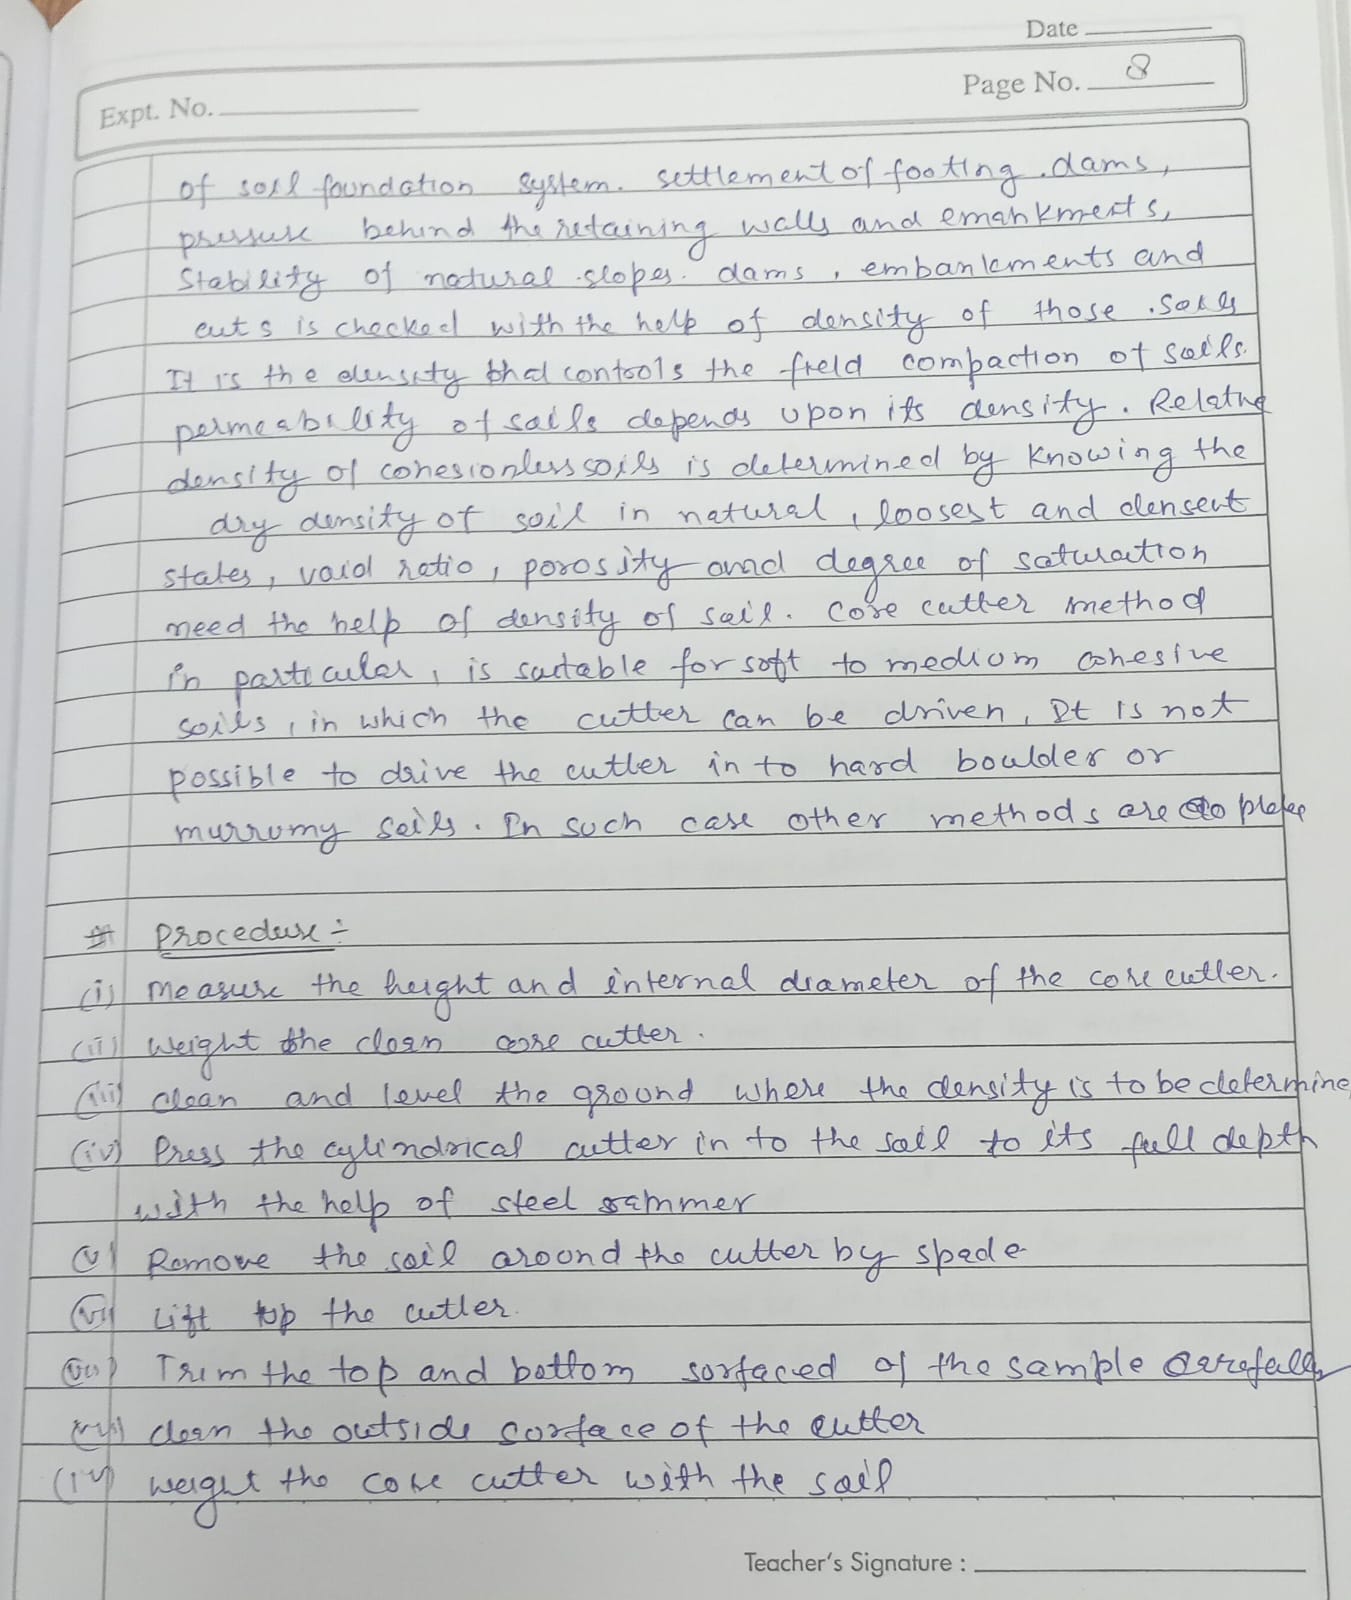 Date
Page No. 8
Expt. No.
of soil foundation system. settlement of footing. dams,
pressure behind the retaining walls and emankments,
Stability of natural slopes. dams, embankments and
cuts is checked with the help of density of those soils
It is the density that controls the field compaction of soils.
permeability of soils depends upon its density. Relative
density of cohesionless soils is determined by knowing the
dry density of soil in natural, loosest and densest
states, void ratio, porosity and degree of saturation
need the help of density of soil. Core cutter method
in particular, is suitable for soft to medium cohesive
soils, in which the cutter can be driven, It is not
possible to drive the cutter in to hard boulder or
murrumy soils. In such case other methods are to
# Procedure :-
(i) measure the height and internal diameter of the core cutter.
(ii) weight the clean core cutter.
(iii) clean and level the ground where the density is to be determine
(iv) Press the cylindrical cutter in to the soil to its full depth
with the help of steel rammer
(v) Remove the soil around the cutter by spade
(vi) Lift up the cutter.
(vii) Trim the top and bottom surfaced of the sample carefully
(viii) clean the outside surface of the cutter
(iv) weight the core cutter with the soil
Teacher's Signature :